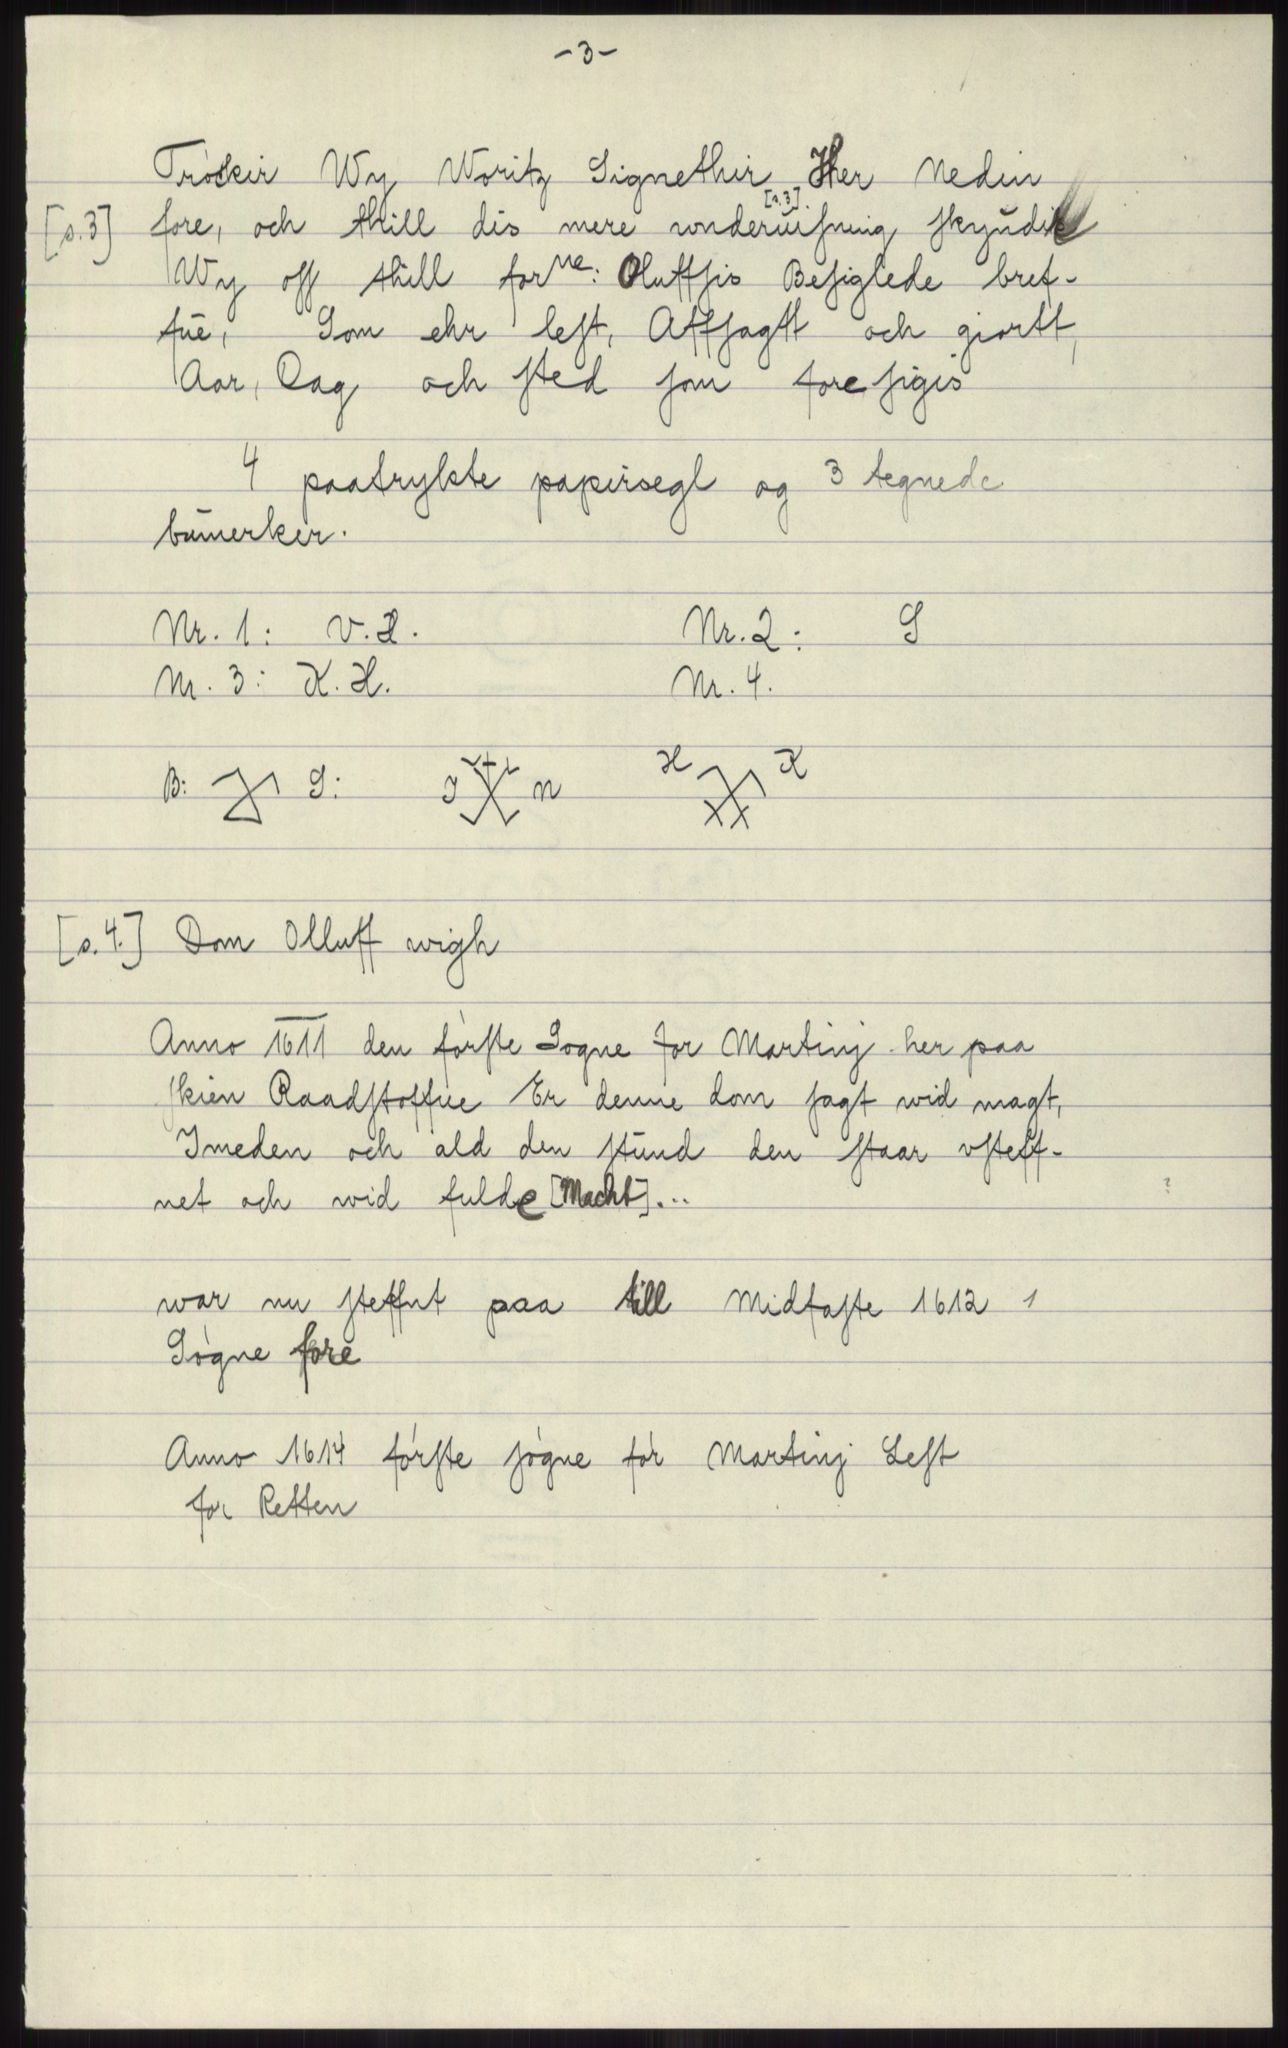 -3-
Trockir Wy Woritz Signethir Her Nedin
[s.3] fore, och thill dis mere wnderuisning [s.3] skyndir
Wy oss thill forne: Oluffsis Besiglede bref-
fue, Som ehr lest, Affsagtt och giortt,
Aar, Dag och sted som foresigis
4 paatrykte papirsegl og 3 tegnede
bumerker.
Nr. 1: V.H. Nr. 2: S
Nr. 3: K.H. Nr. 4.
B: S: J N H K
[s. 4.] Dom Olluff wigh
Anno 1611 den förste Sogne for Martinj her paa
skien Raadstoffue Er denne dom sagt wid magt,
Imeden och ald den stund den staar vsteff-
net och wid fulde [Macht]...
war nu steffnt paa till Midfaste 1612 1
Sögne fore
Anno 1614 förste sögne för Martinj Lest
for Retten